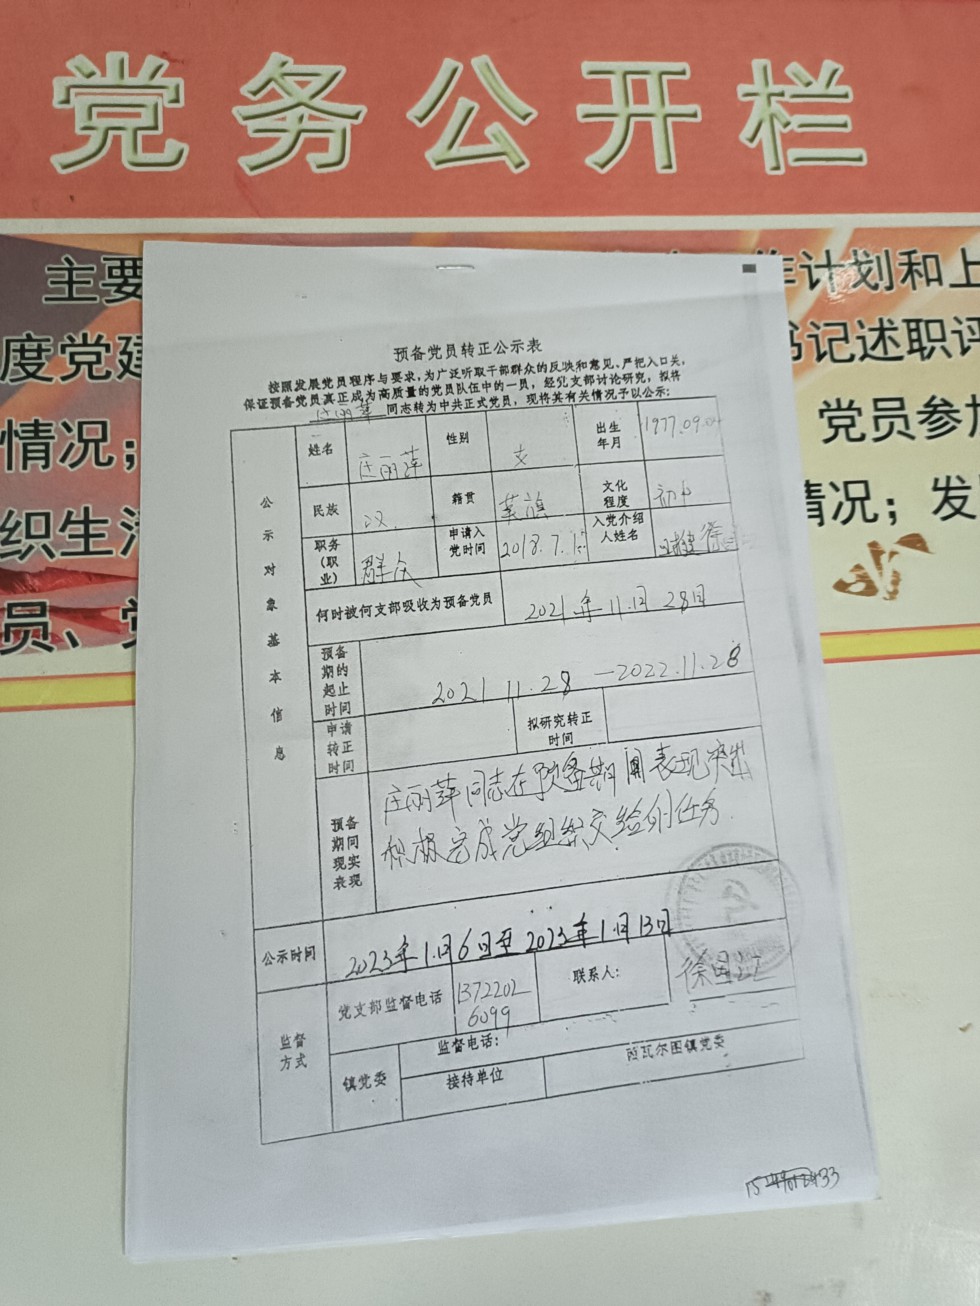 党务公开栏
主要
作计划和上
度党建
书记述职评
情况；
党员参加
织生活
情况；发
员、党
预备党员转正公示表
按照发展党员程序与要求,为广泛听取干部群众的反映和意见、严把入口关，
保证预备党员真正成为高质量的党员队伍中的一员，经党支部讨论研究，拟将
庄丽萍 同志转为中共正式党员，现将其有关情况予以公示:
公示对象基本信息
姓名 庄丽萍 性别 女 出生年月 1977.09.04
民族 汉 籍贯 文化程度 初中
职务（职业） 群众 申请入党时间 2018.7.1 入党介绍人姓名 徐
何时被何支部吸收为预备党员 2021年11月28日
预备期的起止时间 2021 11.28 —2022.11.28
申请转正时间 拟研究转正时间
预备期间现实表现 庄丽萍同志在预备期间表现突出
积极完成党组织交给的任务.
公示时间 2023年1月6日至2023年1月13日
监督方式 党支部监督电话 1372202
6099 联系人： 徐国
镇党委 监督电话：
接待单位 瓦尔图镇党委